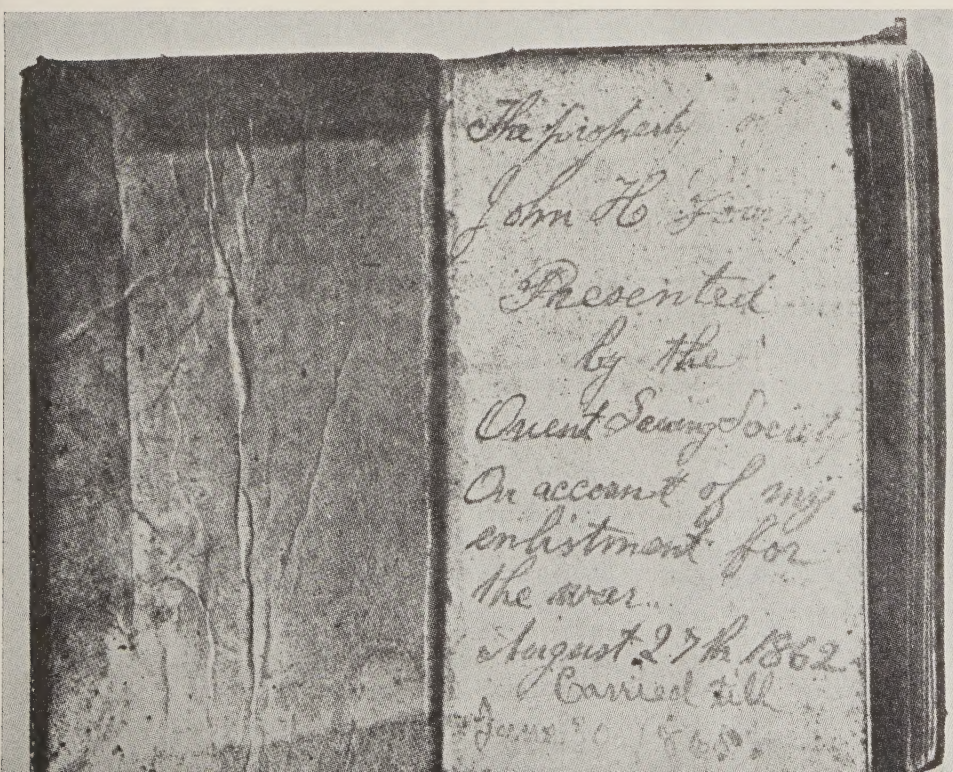 The property
John H
Presented
by the
Orient Sewing Society
On account of my
enlistment for
the war.
August 27th 1862
Carried till
June 1865